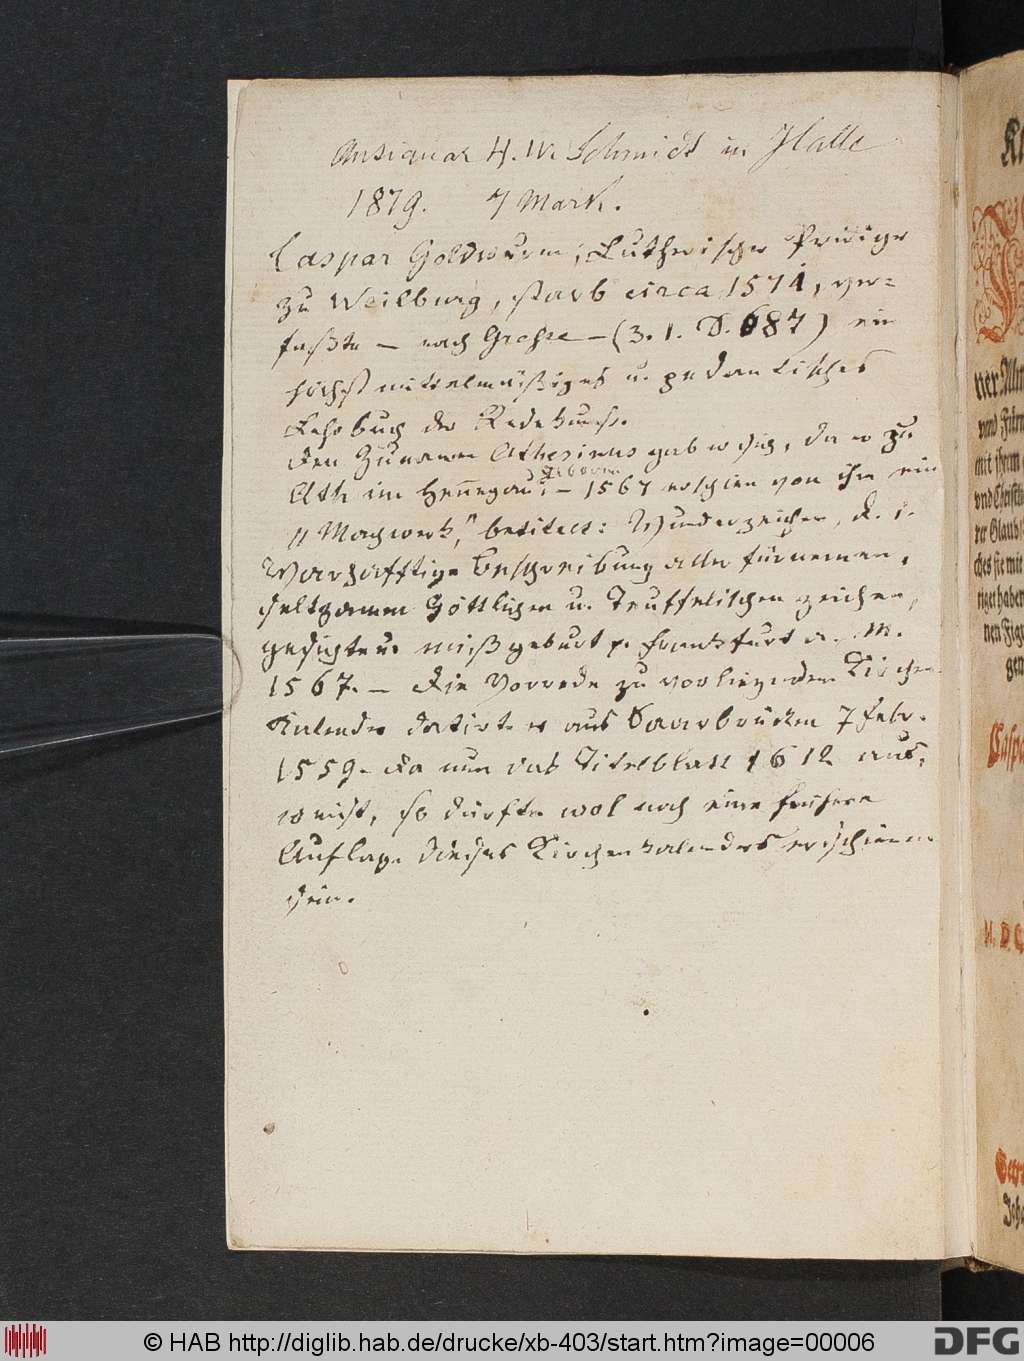 Antiquar H. W. Schmidt in Halle
1879. 7 Mark.
Caspar Goldwurm, Lutherischer Prediger
zu Weilburg, starb circa 1571, ver-
faßte — nach Graesse — (3. 1. S. 687) ein
höchst mittelmäßiges u. pedantisches
Lehrbuch der Redekunst.
Den Zunamen Athesinus gab er sich, da er zu
Ath im Hennegau
geboren
— 1567 erschien von ihm ein
"Machwerk," betitelt: Wunderzeichen, d. i.
Warhafftige Beschreibung aller fürnemen,
seltzamen Göttlichen u. Teuffelischen zeichen,
gesichte u. mißgeburt p. Frankfurt a. M.
1567. — Die Vorrede zu vorliegendem Kirchen-
Kalender datirt er aus Saarbrücken 7 Febr.
1559. Da nun das Titelblatt 1612 aus-
weist, so dürfte wol noch eine frühere
Auflage dieses Kirchenkalenders erschienen
sein.
ner Alm
vnd Für
mit ihrem
vnd Christli
rer Glaub
ches sie mit
siget haben
nen Fig
gen
Casp
M. D. C
Joh
© HAB http://diglib.hab.de/drucke/xb-403/start.htm?image=00006
DFG